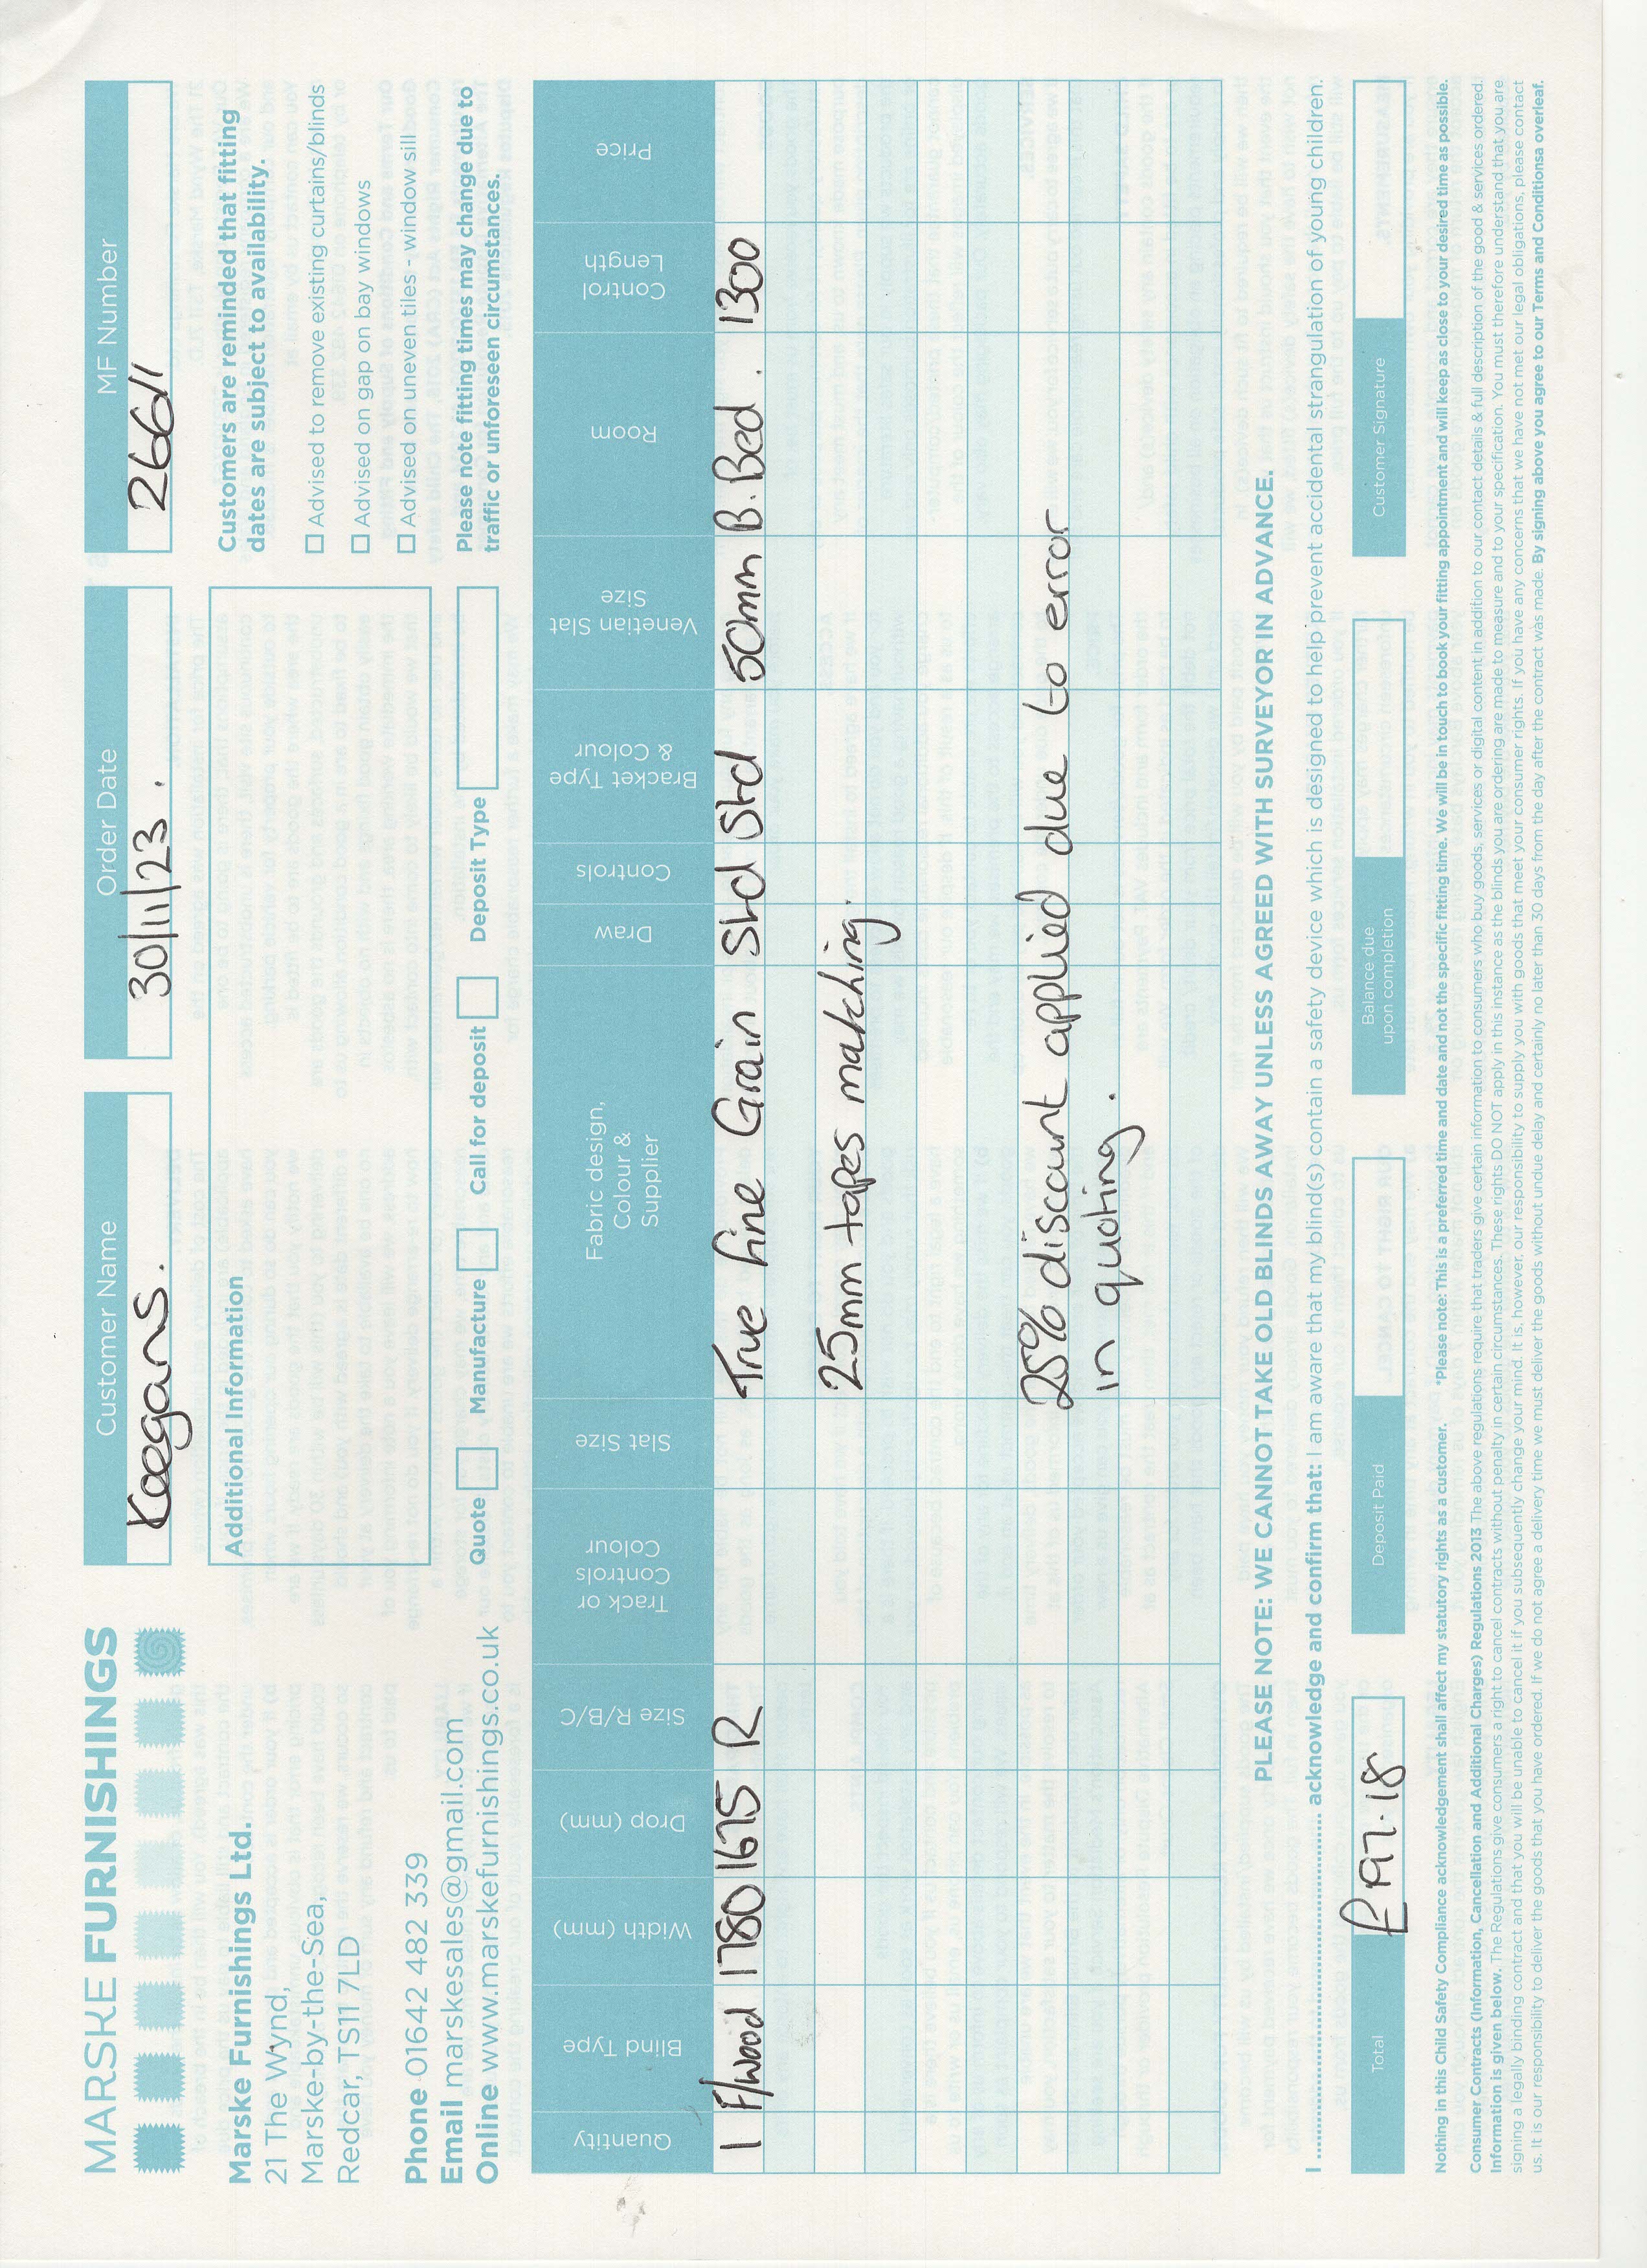 MARSKE FURNISHINGS
Marske Furnishings Ltd.
21 The Wynd,
Marske-by-the-Sea,
Redcar, TS11 7LD
Phone 01642 482 339
Email marskesales@gmail.com
Online www.marskefurnishings.co.uk
Customer Name
Keegans.
Order Date
30/11/23.
MF Number
26611
Additional Information
Customers are reminded that fitting
dates are subject to availability.
Advised to remove existing curtains/blinds
Advised on gap on bay windows
Advised on uneven tiles - window sill
Please note fitting times may change due to
traffic or unforeseen circumstances.
Quote Manufacture Call for deposit Deposit Type
Quantity Blind Type Width (mm) Drop (mm) Size R/B/C Track or Controls Colour Slat Size Fabric design, Colour & Supplier Draw Controls Bracket Type & Colour Venetian Slat Size Room Control Length Price
1 F/wood 1780 1675 R True Fine Grain Std Std 50mm B.Bed. 1300
25mm tapes matching.
25% discount applied due to error
in quoting.
PLEASE NOTE: WE CANNOT TAKE OLD BLINDS AWAY UNLESS AGREED WITH SURVEYOR IN ADVANCE.
I .......... acknowledge and confirm that: I am aware that my blind(s) contain a safety device which is designed to help prevent accidental strangulation of young children.
Total £197.18 Deposit Paid Balance due upon completion Customer Signature
Nothing in this Child Safety Compliance acknowledgement shall affect my statutory rights as a customer. *Please note: This is a preferred time and date and not the specific fitting time. We will be in touch to book your fitting appointment and will keep as close to your desired time as possible.
Consumer Contracts (Information, Cancellation and Additional Charges) Regulations 2013 The above regulations require that traders give certain information to consumers who buy goods, services or digital content in addition to our contact details & full description of the good & services ordered.
Information is given below. The Regulations give consumers a right to cancel contracts without penalty in certain circumstances. These rights DO NOT apply in this instance as the blinds you are ordering are made to measure and to your specification. You must therefore understand that you are
signing a legally binding contract and that you will be unable to cancel it if you subsequently change your mind. It is, however, our responsibility to supply you with goods that meet your consumer rights. If you have any concerns that we have not met our legal obligations, please contact
us. It is our responsibility to deliver the goods that you have ordered. If we do not agree a delivery time we must deliver the goods without undue delay and certainly no later than 30 days from the day after the contract was made. By signing above you agree to our Terms and Conditionsa overleaf.